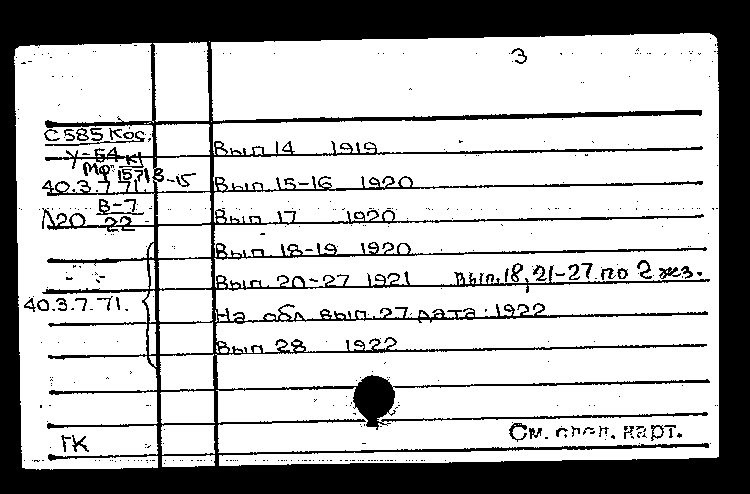 3
С585 Кос.
У-54
Мф К1
Вып. 14 1919
40.3.7.71. В-15
Вып. 15-16 1920
Л20 В-7
22
Вып. 17 1920
Вып. 18-19 1920
Вып. 20-27 1921 вып. 18, 21-27 по 2 экз.
40.3.7.71.
На обл. вып. 27 дата: 1922
Вып. 28 1922
ГК
См. спец. карт.